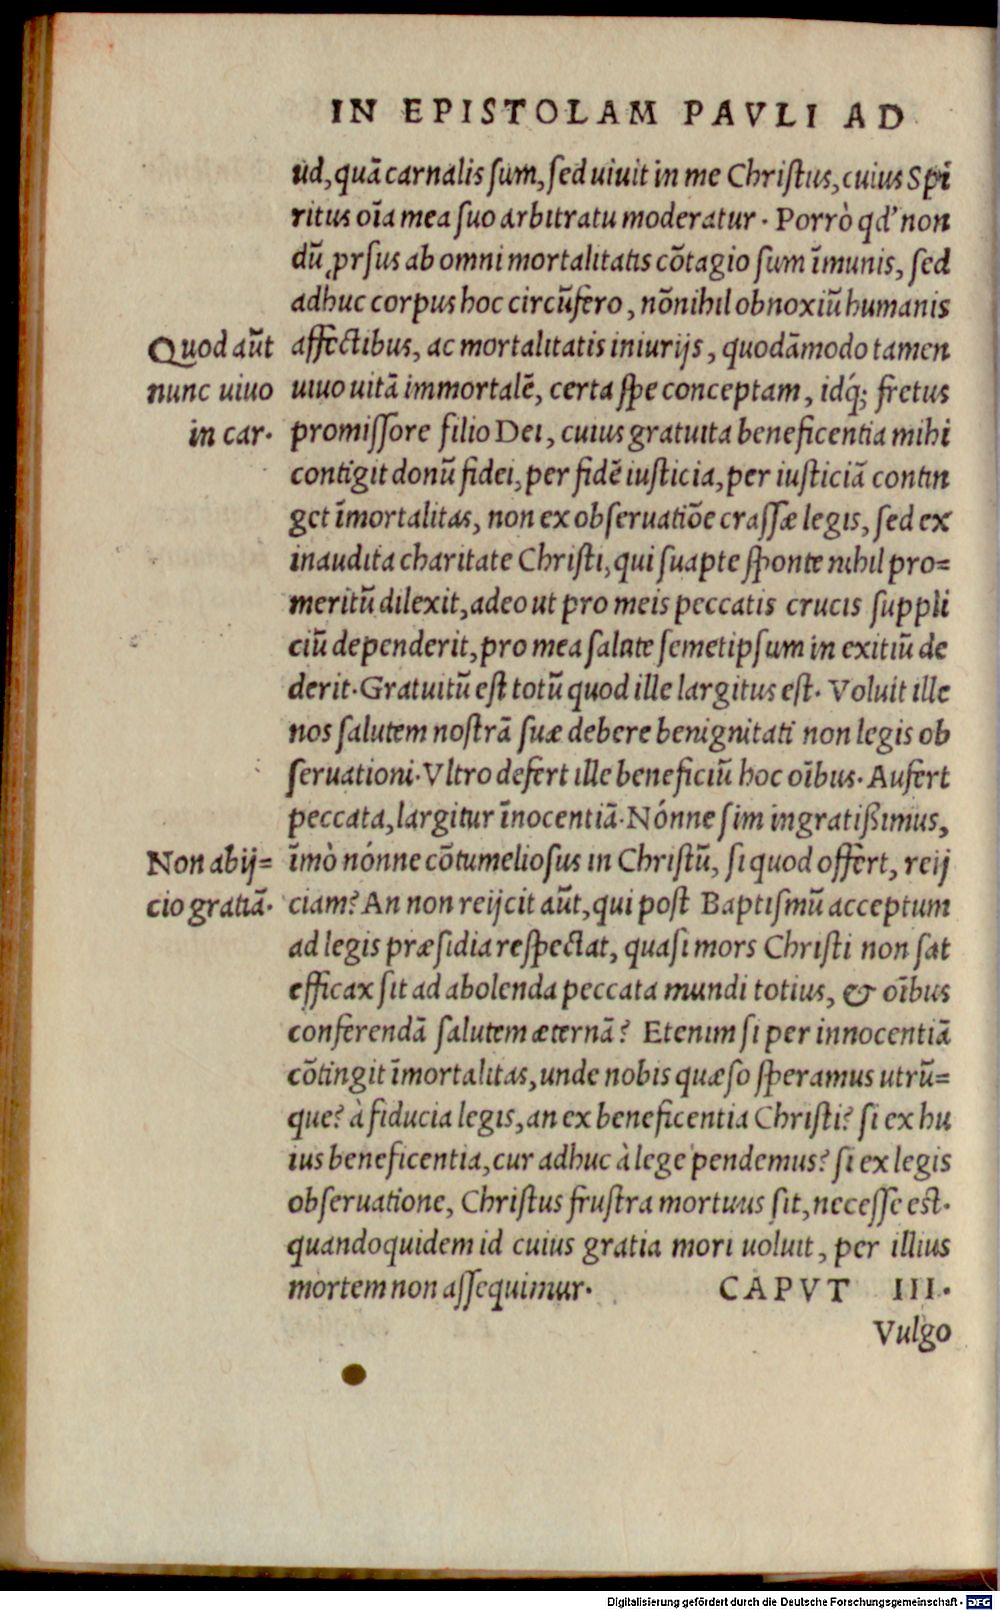 IN EPISTOLAM PAVLI AD
ud, quā carnalis sum, sed uiuit in me Christus, cuius Spi
ritus oīa mea suo arbitratu moderatur. Porrò qd' non
dū ꝓrsus ab omni mortalitatis cōtagio sum īmunis, sed
adhuc corpus hoc circūfero, nōnihil obnoxiū humanis
Quod aūt
affectibus, ac mortalitatis iniurijs, quodāmodo tamen
nunc uiuo
uiuo uitā immortalē, certa spe conceptam, idq́; fretus
in car.
promissore filio Dei, cuius gratuita beneficentia mihi
contigit donū fidei, per fidē iusticia, per iusticiā contin
get īmortalitas, non ex obseruatiōe crassæ legis, sed ex
inaudita charitate Christi, qui suapte sponte nihil pro=
meritū dilexit, adeo ut pro meis peccatis crucis suppli
ciū dependerit, pro mea salute semetipsum in exitiū de
derit. Gratuitū est totū quod ille largitus est. Voluit ille
nos salutem nostrā suæ debere benignitati non legis ob
seruationi. Vltro defert ille beneficiū hoc oībus. Aufert
peccata, largitur īnocentiā. Nónne sim ingratißimus,
Non abij=
īmò nónne cōtumeliosus in Christū, si quod offert, reij
cio gratiā.
ciam? An non reijcit aūt, qui post Baptismū acceptum
ad legis præsidia respectat, quasi mors Christi non sat
efficax sit ad abolenda peccata mundi totius, & oībus
conferendā salutem æternā? Etenim si per innocentiā
cōtingit īmortalitas, unde nobis quæso speramus utrū=
que? à fiducia legis, an ex beneficentia Christi? si ex hu
ius beneficentia, cur adhuc à lege pendemus? si ex legis
obseruatione, Christus frustra mortuus sit, necesse est.
quandoquidem id cuius gratia mori uoluit, per illius
mortem non assequimur. CAPVT III.
Vulgo
Digitalisierung gefördert durch die Deutsche Forschungsgemeinschaft - DFG